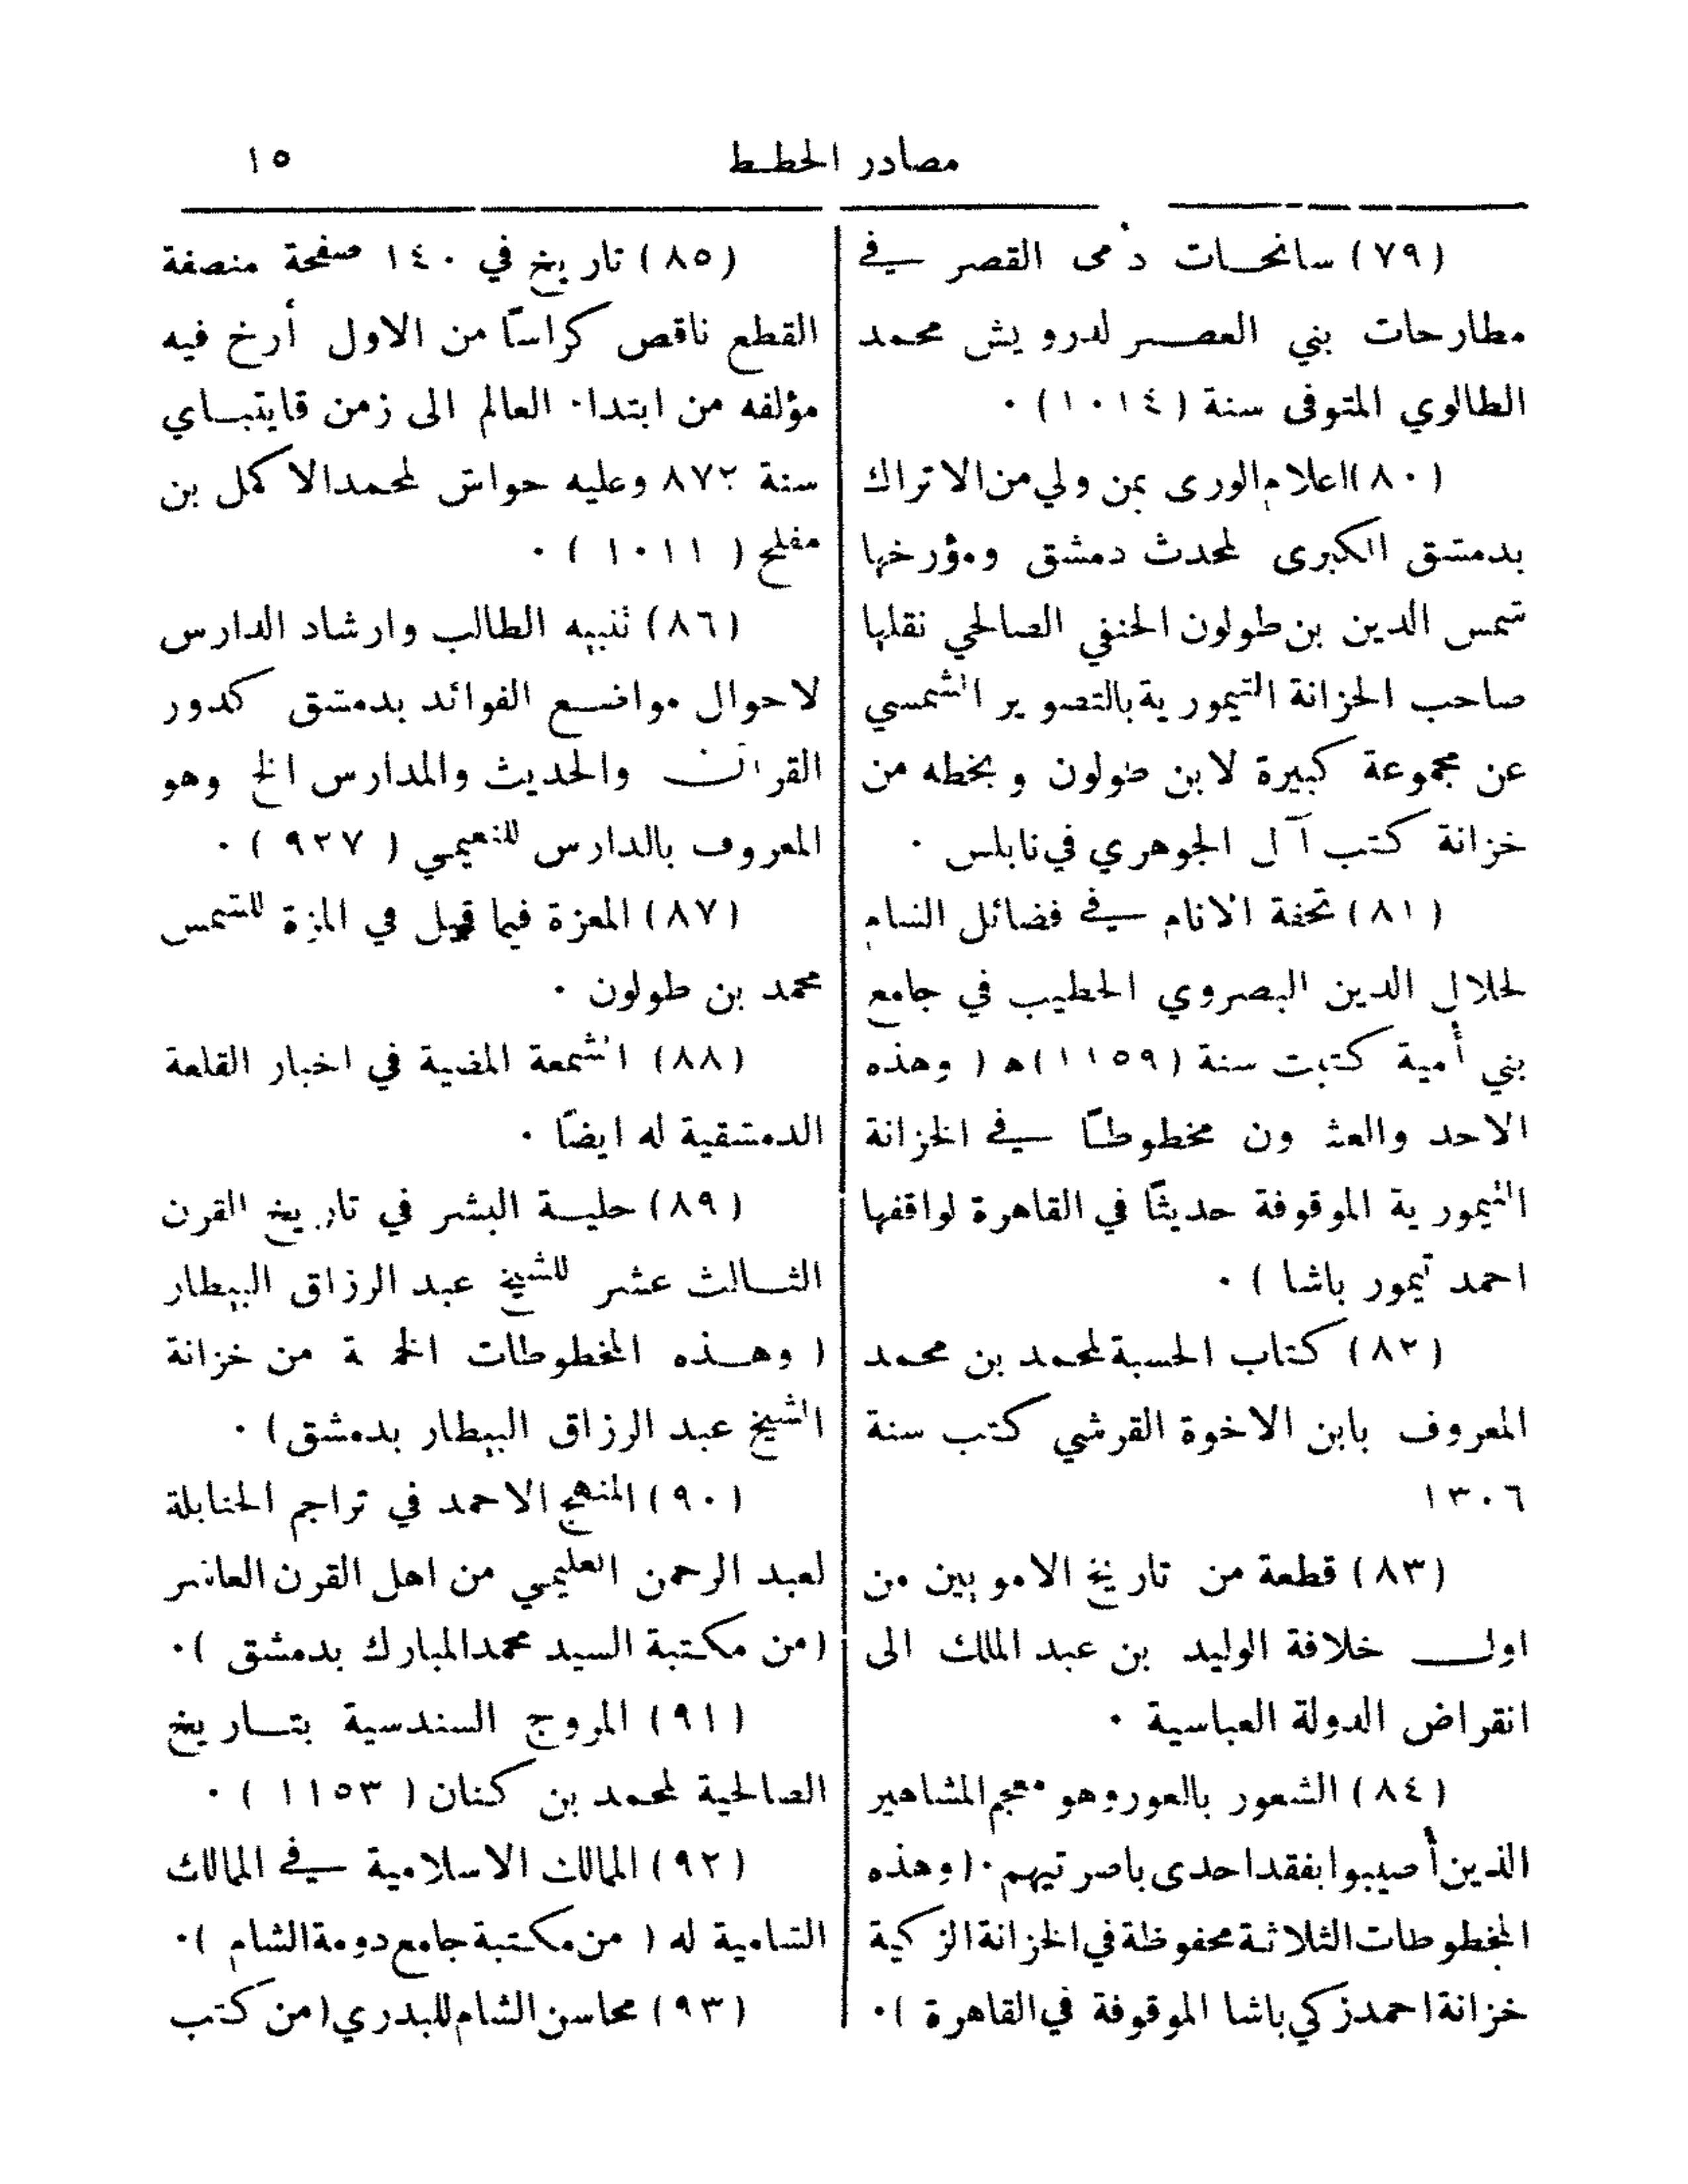 مصادر الخطط
١٥
(٧٩) سانحات دُمى القصر في
مطارحات بني العصر لدرويش محمد
الطالوي المتوفى سنة (١٠١٤) ٠
(٨٠) اعلام الورى بمن ولي من الاتراك
بدمشق الكبرى لمحدث دمشق ومؤرخها
شمس الدين بن طولون الحنفي الصالحي نقلها
صاحب الخزانة التيمورية بالتصوير الشمسي
عن مجموعة كبيرة لابن طولون وبخطه من
خزانة كتب آل الجوهري في نابلس ٠
(٨١) تحفة الانام في فضائل الشام
لجلال الدين البصروي الخطيب في جامع
بني أمية كتبت سنة (١١٥٩) ه ( وهذه
الاحد والعشرون مخطوطًا في الخزانة
التيمورية الموقوفة حديثًا في القاهرة لواقفها
احمد تيمور باشا ) ٠
(٨٢) كتاب الحسبة لمحمد بن محمد
المعروف بابن الاخوة القرشي كتب سنة
١٣٠٦
(٨٣) قطعة من تاريخ الامويين من
اول خلافة الوليد بن عبد الملك الى
انقراض الدولة العباسية ٠
(٨٤) الشعور بالعور وهو معجم المشاهير
الذين أصيبوا بفقد احدى باصرتيهم ٠ ( وهذه
المخطوطات الثلاثة محفوظة في الخزانة الزكية
خزانة احمد زكي باشا الموقوفة في القاهرة ) ٠
(٨٥) تاريخ في ١٤٠ صفحة منصفة
القطع ناقص كراسًا من الاول أرخ فيه
مؤلفه من ابتداء العالم الى زمن قايتباي
سنة ٨٧٢ وعليه حواش لمحمد الاكمل بن
مفلح ( ١٠١١ ) ٠
(٨٦) تنبيه الطالب وارشاد الدارس
لاحوال مواضع الفوائد بدمشق كدور
القرآن والحديث والمدارس الخ وهو
المعروف بالدارس للنعيمي ( ٩٢٧ ) ٠
(٨٧) المعزة فيما قيل في المزة للشمس
محمد بن طولون ٠
(٨٨) الشمعة المضية في اخبار القلعة
الدمشقية له ايضًا ٠
(٨٩) حلية البشر في تاريخ القرن
الثالث عشر للشيخ عبد الرزاق البيطار
( وهذه المخطوطات الخمسة من خزانة
الشيخ عبد الرزاق البيطار بدمشق) ٠
(٩٠) المنهج الاحمد في تراجم الحنابلة
لعبد الرحمن العليمي من اهل القرن العاشر
(من مكتبة السيد محمد المبارك بدمشق ) ٠
(٩١) المروج السندسية بتاريخ
الصالحية لمحمد بن كنان ( ١١٥٣ ) ٠
(٩٢) الممالك الاسلامية في الممالك
الشامية له ( من مكتبة جامع دومة الشام ) ٠
(٩٣) محاسن الشام للبدري ( من كتب